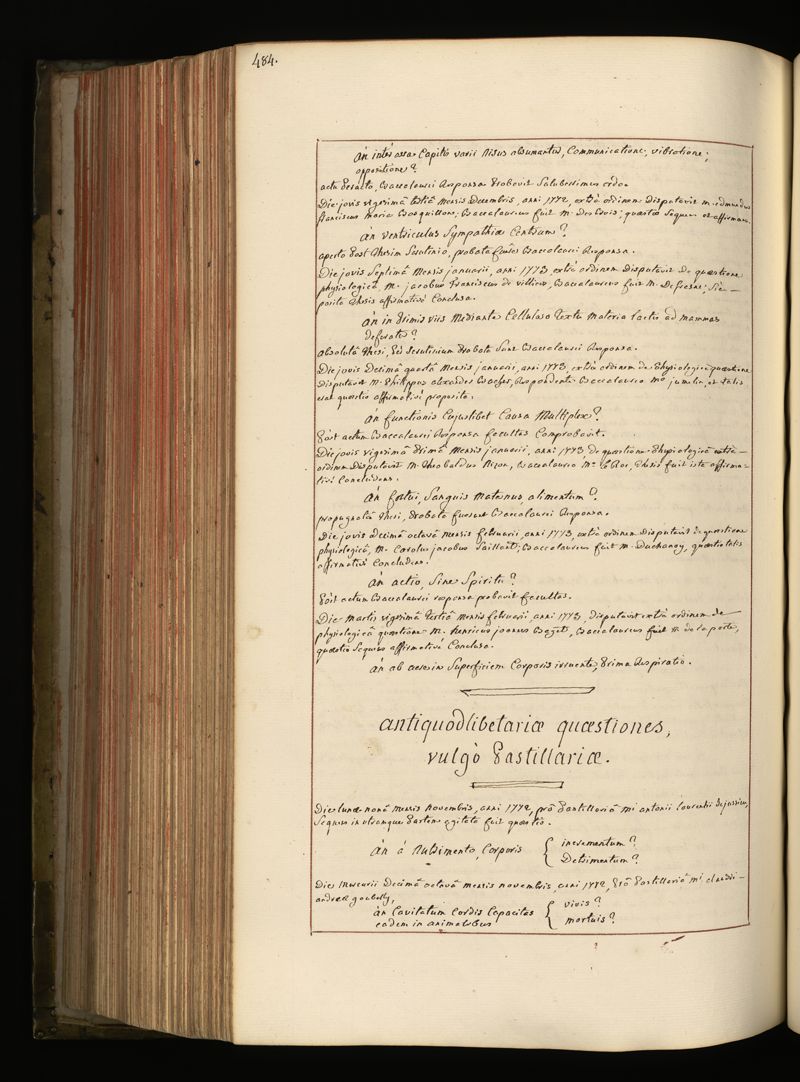 484.
an inter ossa Capitis varii Nisus absumantur, Communicatione, vibratione,
oppositione?
actu peracto, Baccalaurei Responsa probavit Saluberrimus ordo.
Die jovis vigesimâ tertiâ Mensis Decembris, anni 1772, extrà ordinem disputavit m. edmundus
franciscus maria Bosquillon; Baccalaureus fuit M. ; quæstio Sequens et affirmans.
an ventriculus Sympathiæ Centrum?
aperto post thesim Scrutinio, probata fuêre Baccalaurei Responsa.
Die jovis Septimâ Mensis januarii, anni 1773, extrà ordinem disputavit De quæstione
physiologicâ, M. jacobus franciscus de villiers, Baccalaureus fuit M. Defrasne; Sic
posita thesis affirmativè Conclusa.
an in primis viis Mediante Celluloso textu materia lactis ad mammas
deferatur?
absolutâ thesi, per Scrutinium probata Sunt Baccalaurei Responsa.
Die jovis Decimâ quartâ Mensis januarii, anni 1773, extrà ordinem de physiologicâ quæstione
disputavit M. philippus alexander Bacher, Respondente Baccalaureo Mo jumelin, et talis
erat quæstio affirmativè proposita.
an functionis Cujuslibet Causa Multiplex?
post actum Baccalaurei Responsa facultas Comprobavit.
Die jovis vigesimâ primâ Mensis januarii, anni 1773 de quæstione physiologicâ extrà
ordinem Disputavit M. theobaldus , Baccalaureo Mo , thesis fuit ista affirma=
tivè Concludens.
an fœtui, Sanguis Maternus, alimentum?
propugnatâ thesi, probata fuerunt Baccalaurei Responsa.
Die jovis Decimâ octavâ mensis februarii, anni 1773, extrà ordinem disputavit de quæstione
physiologicâ, M. Carolus jacobus Saillant; Baccalaureus fuit M. Duchanoy, quæstio talis
affirmativè Concludens.
an actio, Sine Spiritu?
post actum Baccalaurei responsa probavit facultas.
Die Martis vigesimâ tertiâ Mensis februarii, anni 1773, disputavit extrà ordinem de
physiologicâ quæstione M. henricus joannes Baget, Baccalaureus fuit M. de la porte,
quæstio Sequens affirmativè Conclusa.
an ab aere in Superficiem Corporis irruente, prima Respiratio.
antiquodlibetariæ quæstiones,
vulgò pastillariæ.
Die lunæ nonâ Mensis Novembris, anni 1772, prô pastillariâ Mi antonii laurentii dejussieu,
Sequens in utramque partem agitata fuit quæstio.
an à Nutrimento, Corporis { incrementum?
Detrimentum?
Die Mercurii Decimâ octavâ mensis novembris, anni 1772, prô pastillariâ Mi
andreæ goubelly,
an Cavitatum Cordis Capacitas
eadem in animalibus { vivis?
mortuis?